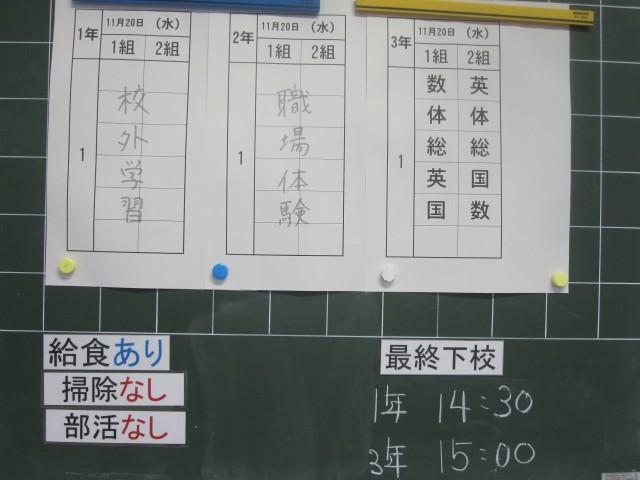 1年 11月20日 （水）
1組 2組
1
校外学習
2年 11月20日 （水）
1組 2組
1
職場体験
3年 11月20日 （水）
1組 2組
1
数 英
体 体
総 総
英 国
国 数
給食あり
掃除なし
部活なし
最終下校
1年 14:30
3年 15:00